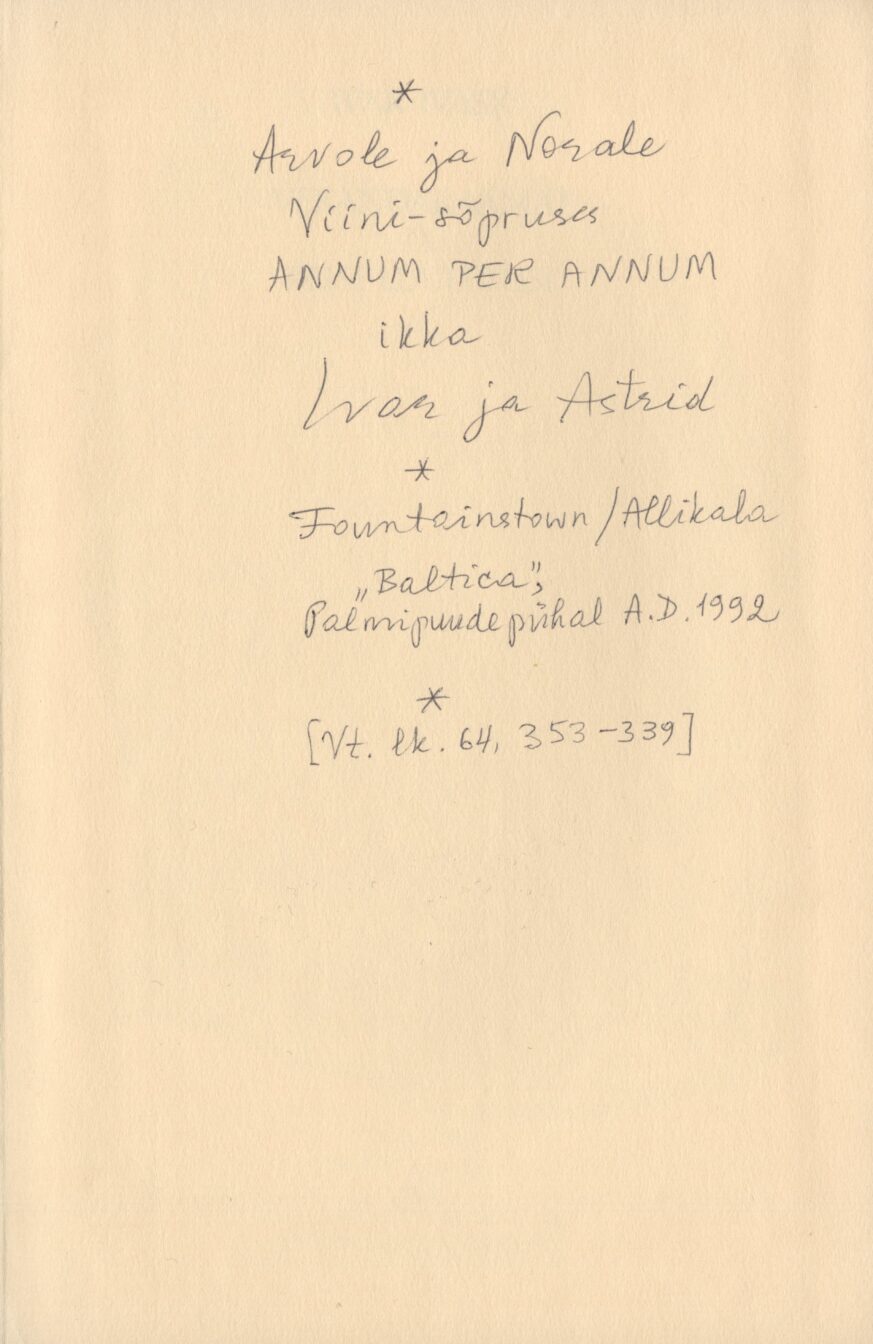 *
Arvole ja Norale
Viini-sõpruses
ANNUM PER ANNUM
ikka
Ivar ja Astrid
*
Fountainstown/Allikala
„Baltica”,
Palmipuudepühal A.D. 1992
*
[Vt. lk. 64, 353-339]